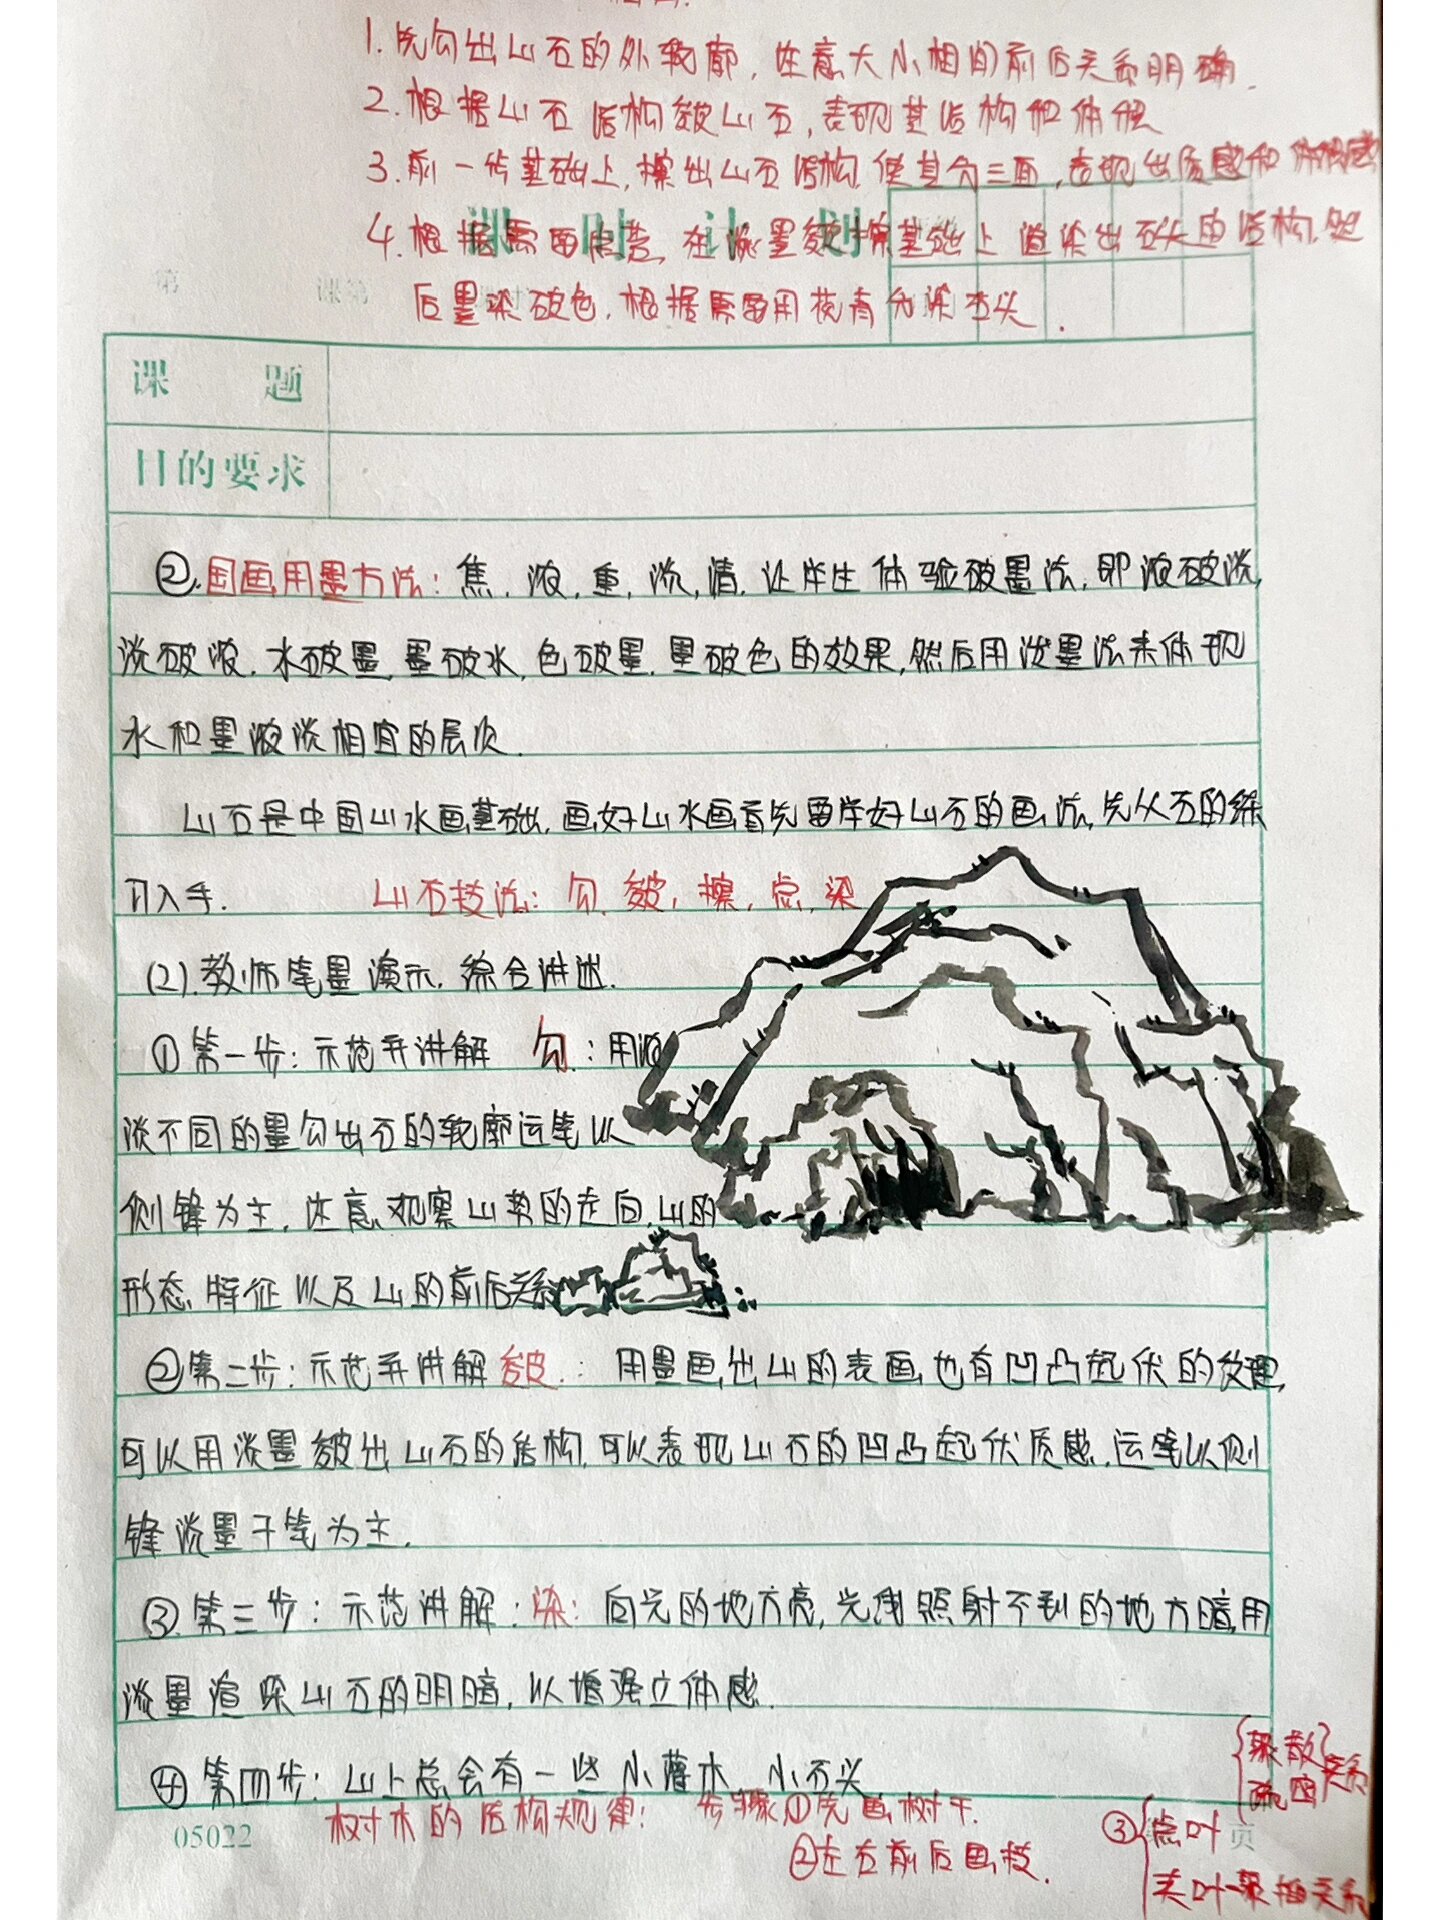 1.先勾出山石的外轮廓，注意大小相间前后关系明确.
2.根据山石结构皴山石，表现其结构和体积
3.前一步基础上，擦出山石结构，使其分三面，表现出质感和体积感
4.根据需要点苔，在淡墨皴擦基础上渲染出石头的结构，
后墨染破色，根据需要用花青分染石头.
课时计划
第 课第
课 题
目的要求
②.国画用墨方法：焦，浓，重，淡，清，让学生体验破墨法，即浓破淡，
淡破浓，水破墨，墨破水，色破墨，墨破色的效果，然后用泼墨法来体现
水和墨浓淡相宜的层次.
山石是中国山水画基础，画好山水画首先要学好山石的画法，先从石的练
习入手. 山石技法：勾，皴，擦，点，染
(2).教师笔墨演示，综合讲述.
①第一步：示范并讲解 勾：用浓
淡不同的墨勾出石的轮廓运笔以
侧锋为主，注意观察山势的走向，山的
形态，特征以及山的前后关系
②第二步：示范并讲解皴：用墨画出山的表面也有凹凸起伏的纹理，
可以用淡墨皴出山石的结构，可以表现山石的凹凸起伏质感，运笔以侧
锋淡墨干笔为主.
③第三步：示范讲解：染：向光的地方亮，光线照射不到的地方暗，用
淡墨渲染山石的明暗，以增强立体感.
④第四步：山上总会有一些小灌木，小石头
树木的结构规律： 步骤①先画树干.
②左右前后画枝.
③点叶
夹叶
聚散
疏密
关系
05022
页